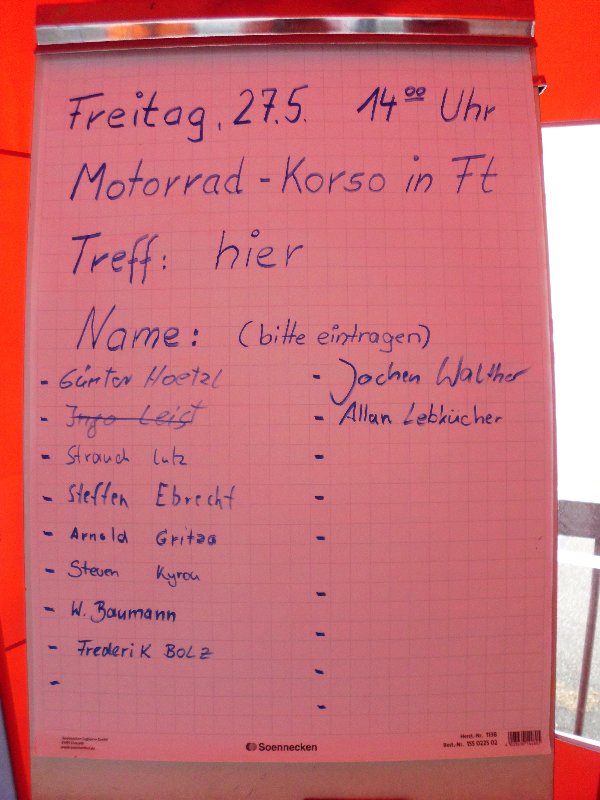 Freitag, 27.5. 14⁰⁰ Uhr
Motorrad - Korso in Ft
Treff: hier
Name: (bitte eintragen)
- Günter Hoetzl
- Ingo Leist
- Strauch Lutz
- Steffen Ebrecht
- Arnold Gritza
- Steven Kyrou
- W. Baumann
- Frederik Bolz
-
- Jochen Walther
- Allan Lebkücher
-
-
-
-
-
-
-
Soennecken
Herst.-Nr. 1138
Best.-Nr. 155 0225 02